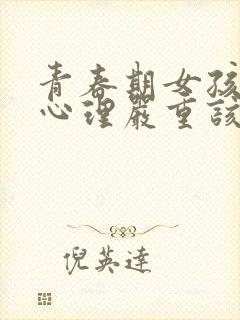 青春期女孩
心理嚴重該
倪英達